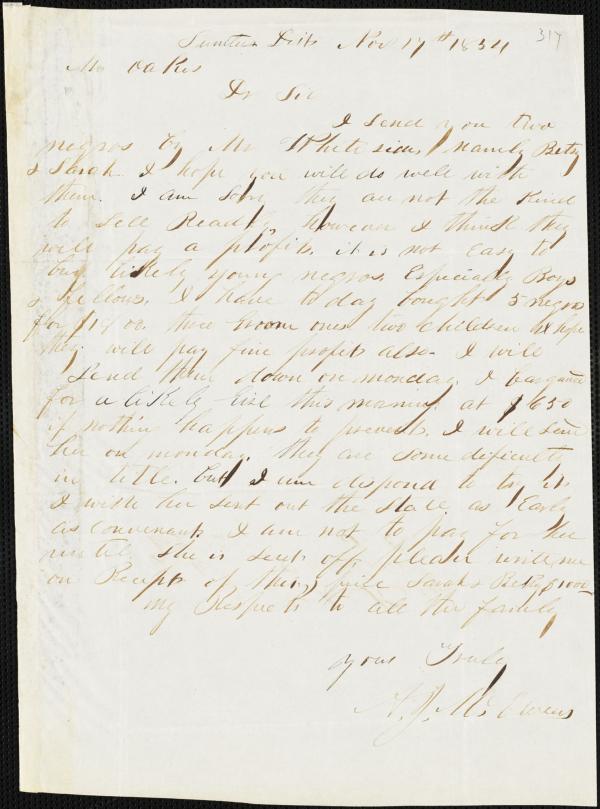 317
Sumter Dist Nov 17th 1854
Mr Oakes
Dr Sir
I send you two
negros by Mr Whitesides, namely Betsy
& Sarah. I hope you will do well with
them. I am sorry they are not the kind
to sell Readily, however I think they
will pay a profit. it is not easy to
buy likely young negros. Especially Boys
& fellows. I have to day bought 5 negros
for three two children
they will pay fine profits also. I will
send them down on monday. I
for a likely this morning at $650
if nothing happens to prevent. I will send
her on monday. they are some dificulty
in title. but I am dispond to try it
I wish her sent out the State as Early
as convenant I am not to pay for her
until she is sent off, please write me
on Recept of this, Sarah & Betsy
my Respects to all the family
yours Truly
A. J. McElveen